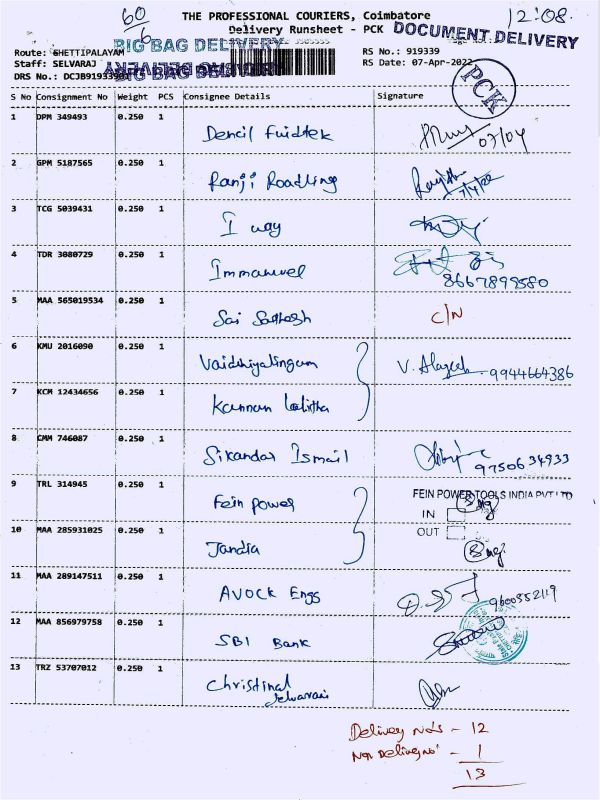 60
6
THE PROFESSIONAL COURIERS, Coimbatore
12:08.
Delivery Runsheet - PCK
DOCUMENT DELIVERY
BIG BAG DELIVERY
Route: GHETTIPALAYAM
RS No.: 919339
Staff: SELVARAJ
RS Date: 07-Apr-2022
BIG BAG DELIVERY
DRS No.:
PCK
S No Consignment No Weight PCS Consignee Details Signature
1 DPM 349493 0.250 1 Dencil Fuidtek 07/04
2 GPM 5187565 0.250 1 Ranji Roadling 7/4/22
3 TCG 5039431 0.250 1 I way
4 TDR 3080729 0.250 1 Immanuvel
8667899580
5 MAA 565019534 0.250 1 Sai Santhosh C/N
6 KMU 2016090 0.250 1 Vaidhiyalingam V. 9944664386
7 KCM 12434656 0.250 1 Kannan Lalitha
8 CMM 746087 0.250 1 Sikandar Ismail 97506 34933
9 TRL 314945 0.250 1 Fein power
FEIN POWER TOOLS INDIA PVT LTD
IN
OUT
10 MAA 285931025 0.250 1 Jandia
11 MAA 289147511 0.250 1 AVOCK Engs 9600352119
12 MAA 856979758 0.250 1 SBI Bank
13 TRZ 53707012 0.250 1 Christinal
Selvarani
Delivery No's - 12
Non Delivery No' - 1
13